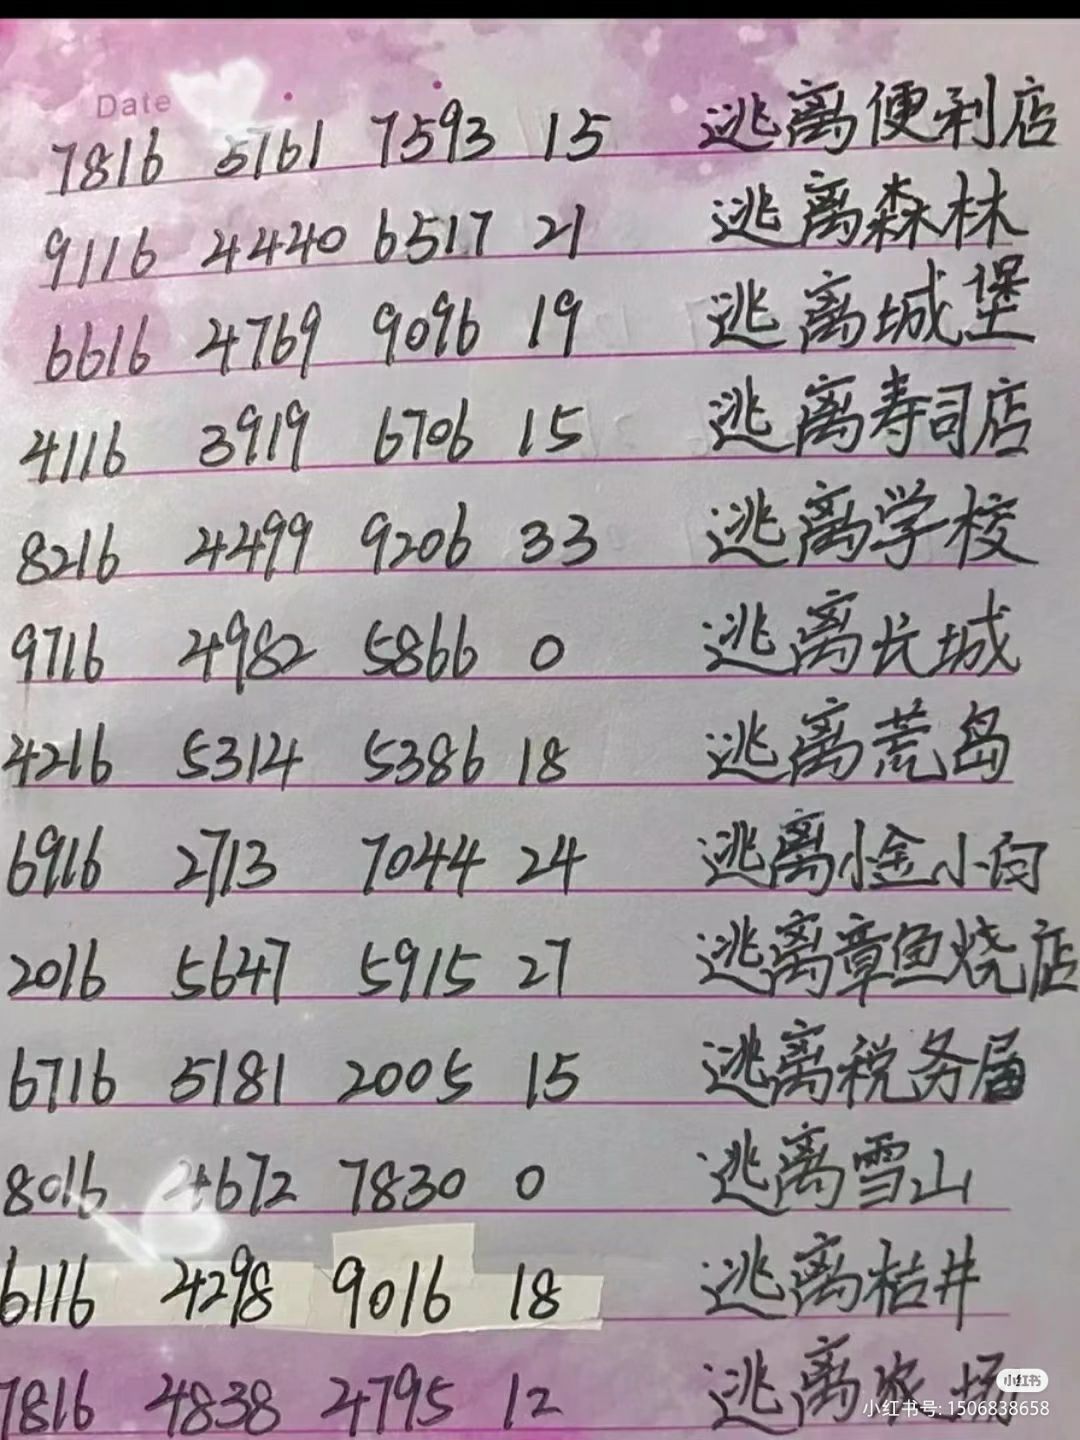 Date
7816 5761 7593 15 逃离便利店
9116 4440 6517 21 逃离森林
6616 4769 9096 19 逃离城堡
4116 3919 6706 15 逃离寿司店
8216 4499 9206 33 逃离学校
9716 4982 5866 0 逃离长城
4216 5314 5386 18 逃离荒岛
6916 2713 7044 24 逃离小金小向
2016 5647 5915 27 逃离章鱼烧店
6716 5181 2005 15 逃离税务局
8016 4672 7830 0 逃离雪山
6116 4298 9016 18 逃离枯井
7816 4838 4795 12 逃离农场
小红书
小红书号: 1506838658